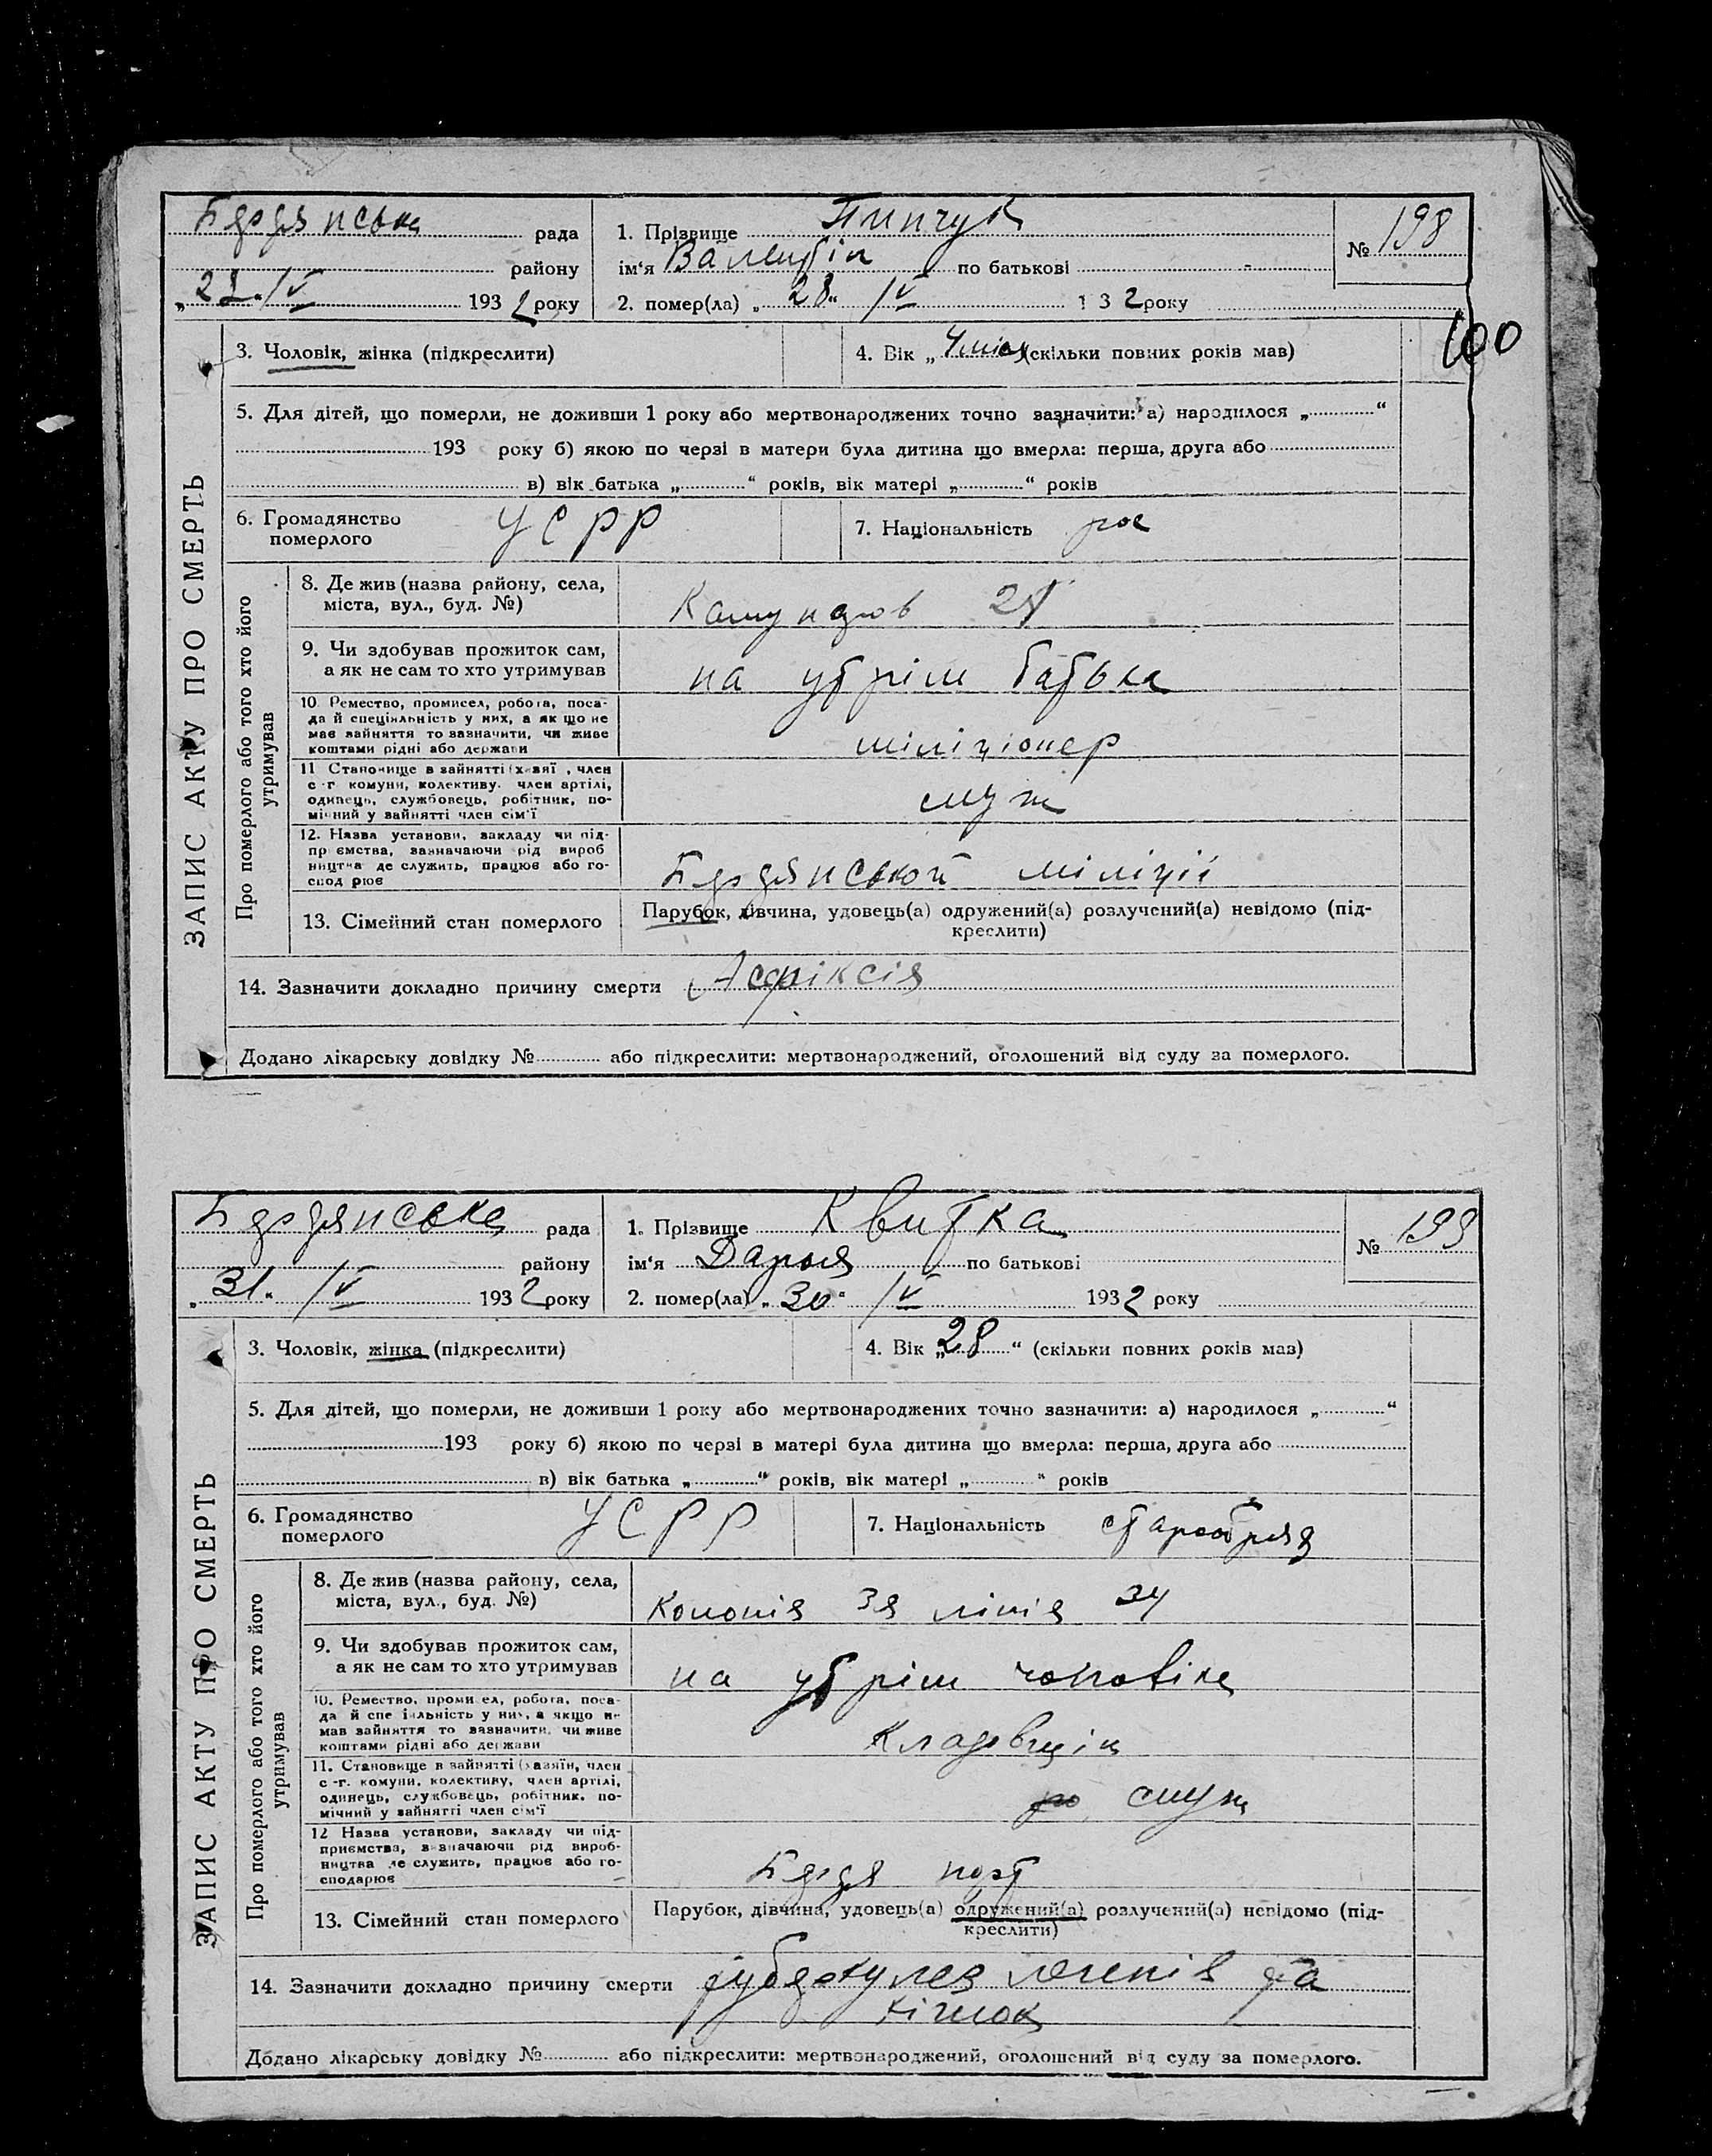 Бердянська рада
1. Прізвище Пинчук
№ 198
району
ім‘я Валентін по батькові -
„ “ IV 1932 року
2. помер(ла) „28“ IV 1 3 2 року
100
ЗАПИС АКТУ ПРО СМЕРТЬ
3. Чоловік, жінка (підкреслити)
4. Вік „ (скільки повних років мав)
5. Для дітей, що померли, не доживши 1 року або мертвонароджених точно зазначити: а) народилося „ “
193 року б) якою по черзі в матери була дитина що вмерла: перша, друга або
в) вік батька „ “ років, вік матері „ “ років
6. Громадянство померлого УСРР
7. Національність рос
Про померлого або того хто його утримував
8. Де жив (назва району, села,
міста, вул., буд. №)
9. Чи здобував прожиток сам,
а як не сам то хто утримував
на утрім батька
10. Ремество, промисел, робота, поса-
да й спеціяльність у них, а як що не
має зайняття то зазначити, чи живе
коштами рідні або держави
міліціонер
11 Становище в зайнятті (х зяї , член
с -г. комуни, колективу, член артілі,
одинець, службовець, робітник, по-
мічний у зайнятті член сім'ї
служ
12. Назва установи, закладу чи під-
пр ємства, зазначаючи рід вироб
ництва де служить, працює або го-
спод рює
Бердянської міліції
13. Сімейний стан померлого
Парубок, дівчина, удовець(а) одружений(а) розлучений(а) невідомо (під-
креслити)
14. Зазначити докладно причину смерти Асфіксія
Додано лікарську довідку № або підкреслити: мертвонароджений, оголошений від суду за померлого.
Бердянська рада
1. Прізвище Квитка
№ 199
району
ім‘я Дарья по батькові
„31“ IV 1932 року
2. помер(ла) „30“ IV 1932 року
ЗАПИС АКТУ ПРО СМЕРТЬ
3. Чоловік, жінка (підкреслити)
4. Вік „28“ (скільки повних років мав)
5. Для дітей, що померли, не доживши 1 року або мертвонароджених точно зазначити: а) народилося „ “
193 року б) якою по черзі в матері була дитина що вмерла: перша, друга або
в) вік батька „ “ років, вік матері „ “ років
6. Громадянство померлого УСРР
7. Національність старобряд
Про померлого або того хто його утримував
8. Де жив (назва району, села,
міста, вул., буд. №)
Колонія 3я лінія 34
9. Чи здобував прожиток сам,
а як не сам то хто утримував
на утрім чоловіка
10. Ремество, проми ел, робота, поса-
да й спе іяльність у них, а якщо не
мав зайняття то зазначити, чи живе
коштами рідні або держави
Кладовщік
11. Становище в зайнятті (хазяїн, член
с -г. комуни, колективу, член артілі,
одинець, службовець, робітник, по-
мічний у зайнятті член сім'ї
служ
12 Назва установи, закладу чи під-
приємства, зазначаючи рід вироб-
ництва де служить, працює або го-
сподарює
Бердя порт
13. Сімейний стан померлого
Парубок, дівчина, удовець(а) одружений(а) розлучений(а) невідомо (під-
креслити)
14. Зазначити докладно причину смерти туберкулез легенів та
кішок
Додано лікарську довідку № або підкреслити: мертвонароджений, оголошений від суду за померлого.